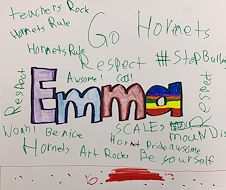 teachers Rock
Hornets Rule
Go Hornets
Hornets Rule
Respect
#StopBull
Awsome!
Cool!
Respect
Respect
Emma
Woah!
Be nice
SCALES
Hornet Pride
awsome
Hornets
Art Rocks
Be yourself